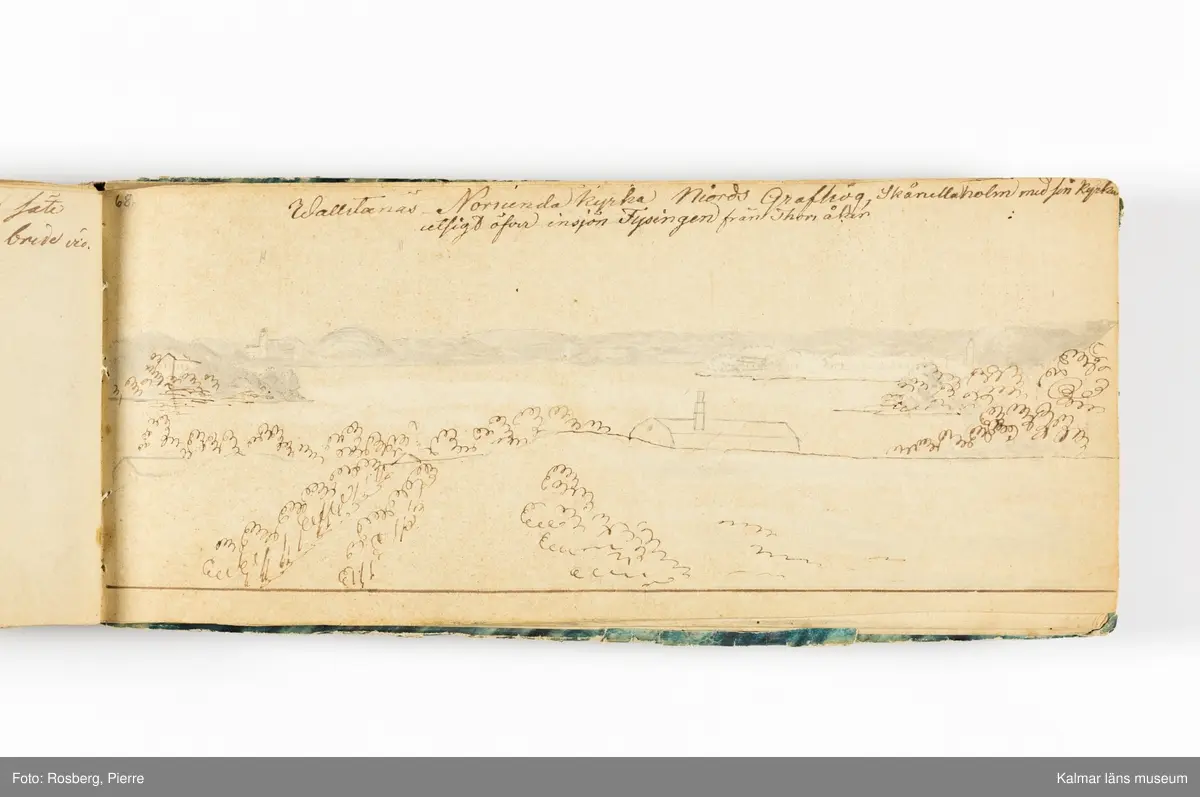 säte
brede vid.
68.
Wallstanäs Norsunda Kyrka Niords Grafhög, Skånellaholm med sin Kyrka
utsigt öfver insjön Fysingen från Skon åsen
Foto: Rosberg, Pierre
Kalmar läns museum